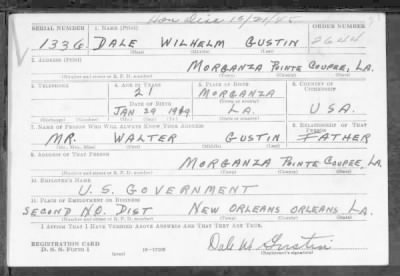 Hon Disc 10/24/45
SERIAL NUMBER 1. NAME (Print) ORDER NUMBER
1336 DALE WILHELM GUSTIN 2644
(First) (Middle) (Last)
2. ADDRESS (Print)
MORGANZA POINTE COUPEE, LA.
(Number and street or R. F. D. number) (Town) (County) (State)
3. TELEPHONE 4. AGE IN YEARS 5. PLACE OF BIRTH 6. COUNTRY OF CITIZENSHIP
21 MORGANZA
DATE OF BIRTH (Town or county)
JAN 29 1919 LA. USA.
(Exchange) (Number) (Mo.) (Day) (Yr.) (State or country)
7. NAME OF PERSON WHO WILL ALWAYS KNOW YOUR ADDRESS 8. RELATIONSHIP OF THAT PERSON
MR. WALTER GUSTIN FATHER
(Mr., Mrs., Miss) (First) (Middle) (Last)
9. ADDRESS OF THAT PERSON
MORGANZA POINTE COUPEE, LA.
(Number and street or R. F. D. number) (Town) (County) (State)
10. EMPLOYER'S NAME
U.S. GOVERNMENT
11. PLACE OF EMPLOYMENT OR BUSINESS
SECOND ND. DIST NEW ORLEANS ORLEANS LA.
(Number and street or R. F. D. number) (Town) (County) (State)
I AFFIRM THAT I HAVE VERIFIED ABOVE ANSWERS AND THAT THEY ARE TRUE.
REGISTRATION CARD
D. S. S. Form 1 16-17105 Dale W. Gustin
(Registrant's signature)